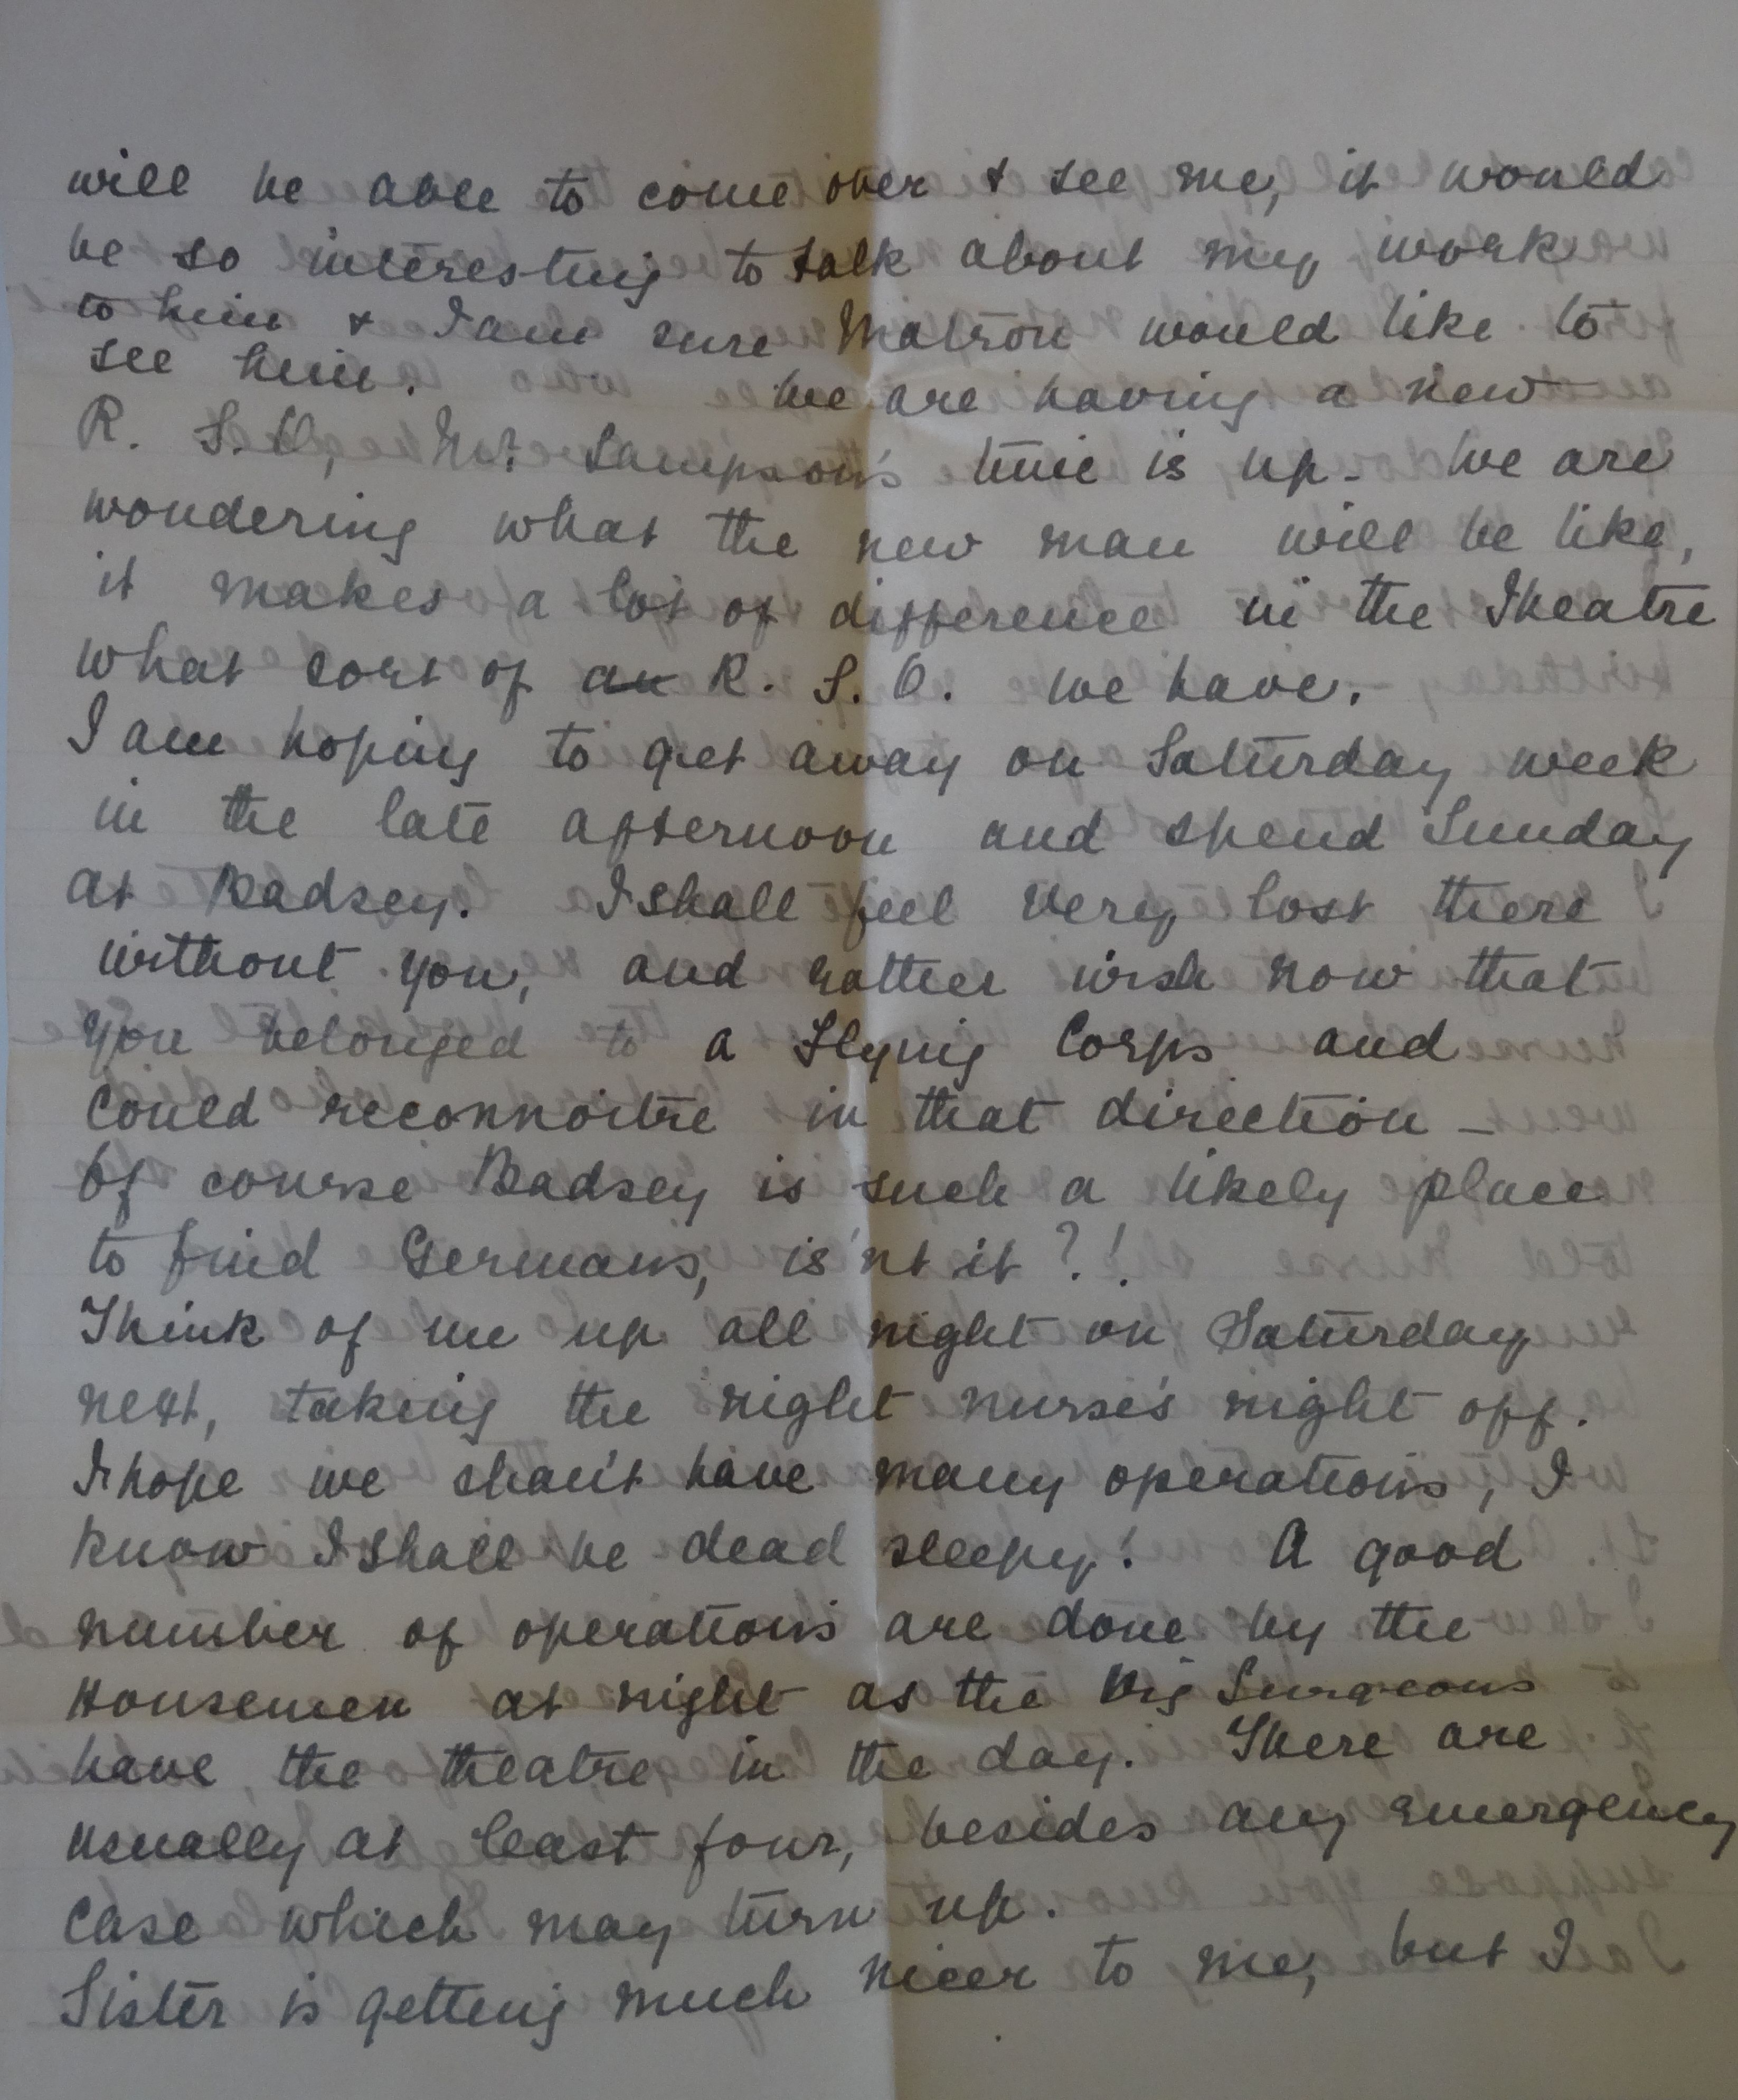 will be able to come over & see me, it would
be so interesting to talk about my work
to him & I am sure Matron would like to
see him. We are having a new
R. S. O, Mr. Sampson's time is up - We are
wondering what the new man will be like,
it makes a lot of difference in the Theatre
what sort of an R. S. O. we have.
I am hoping to get away on Saturday week
in the late afternoon and spend Sunday
at Badsey. I shall feel very lost there
without you, and rather wish now that
you belonged to a Flying Corps and
could reconnoitre in that direction -
Of course Badsey is such a likely place
to find Germans, is'nt it?!
Think of me up all night on Saturday
next, taking the night nurse's night off.
I hope we shan't have many operations, I
know I shall be dead sleepy! A good
number of operations are done by the
Housemen at night as the big Surgeons
have the theatre in the day. There are
usually at least four, besides any emergency
case which may turn up.
Sister is getting much nicer to me, but I